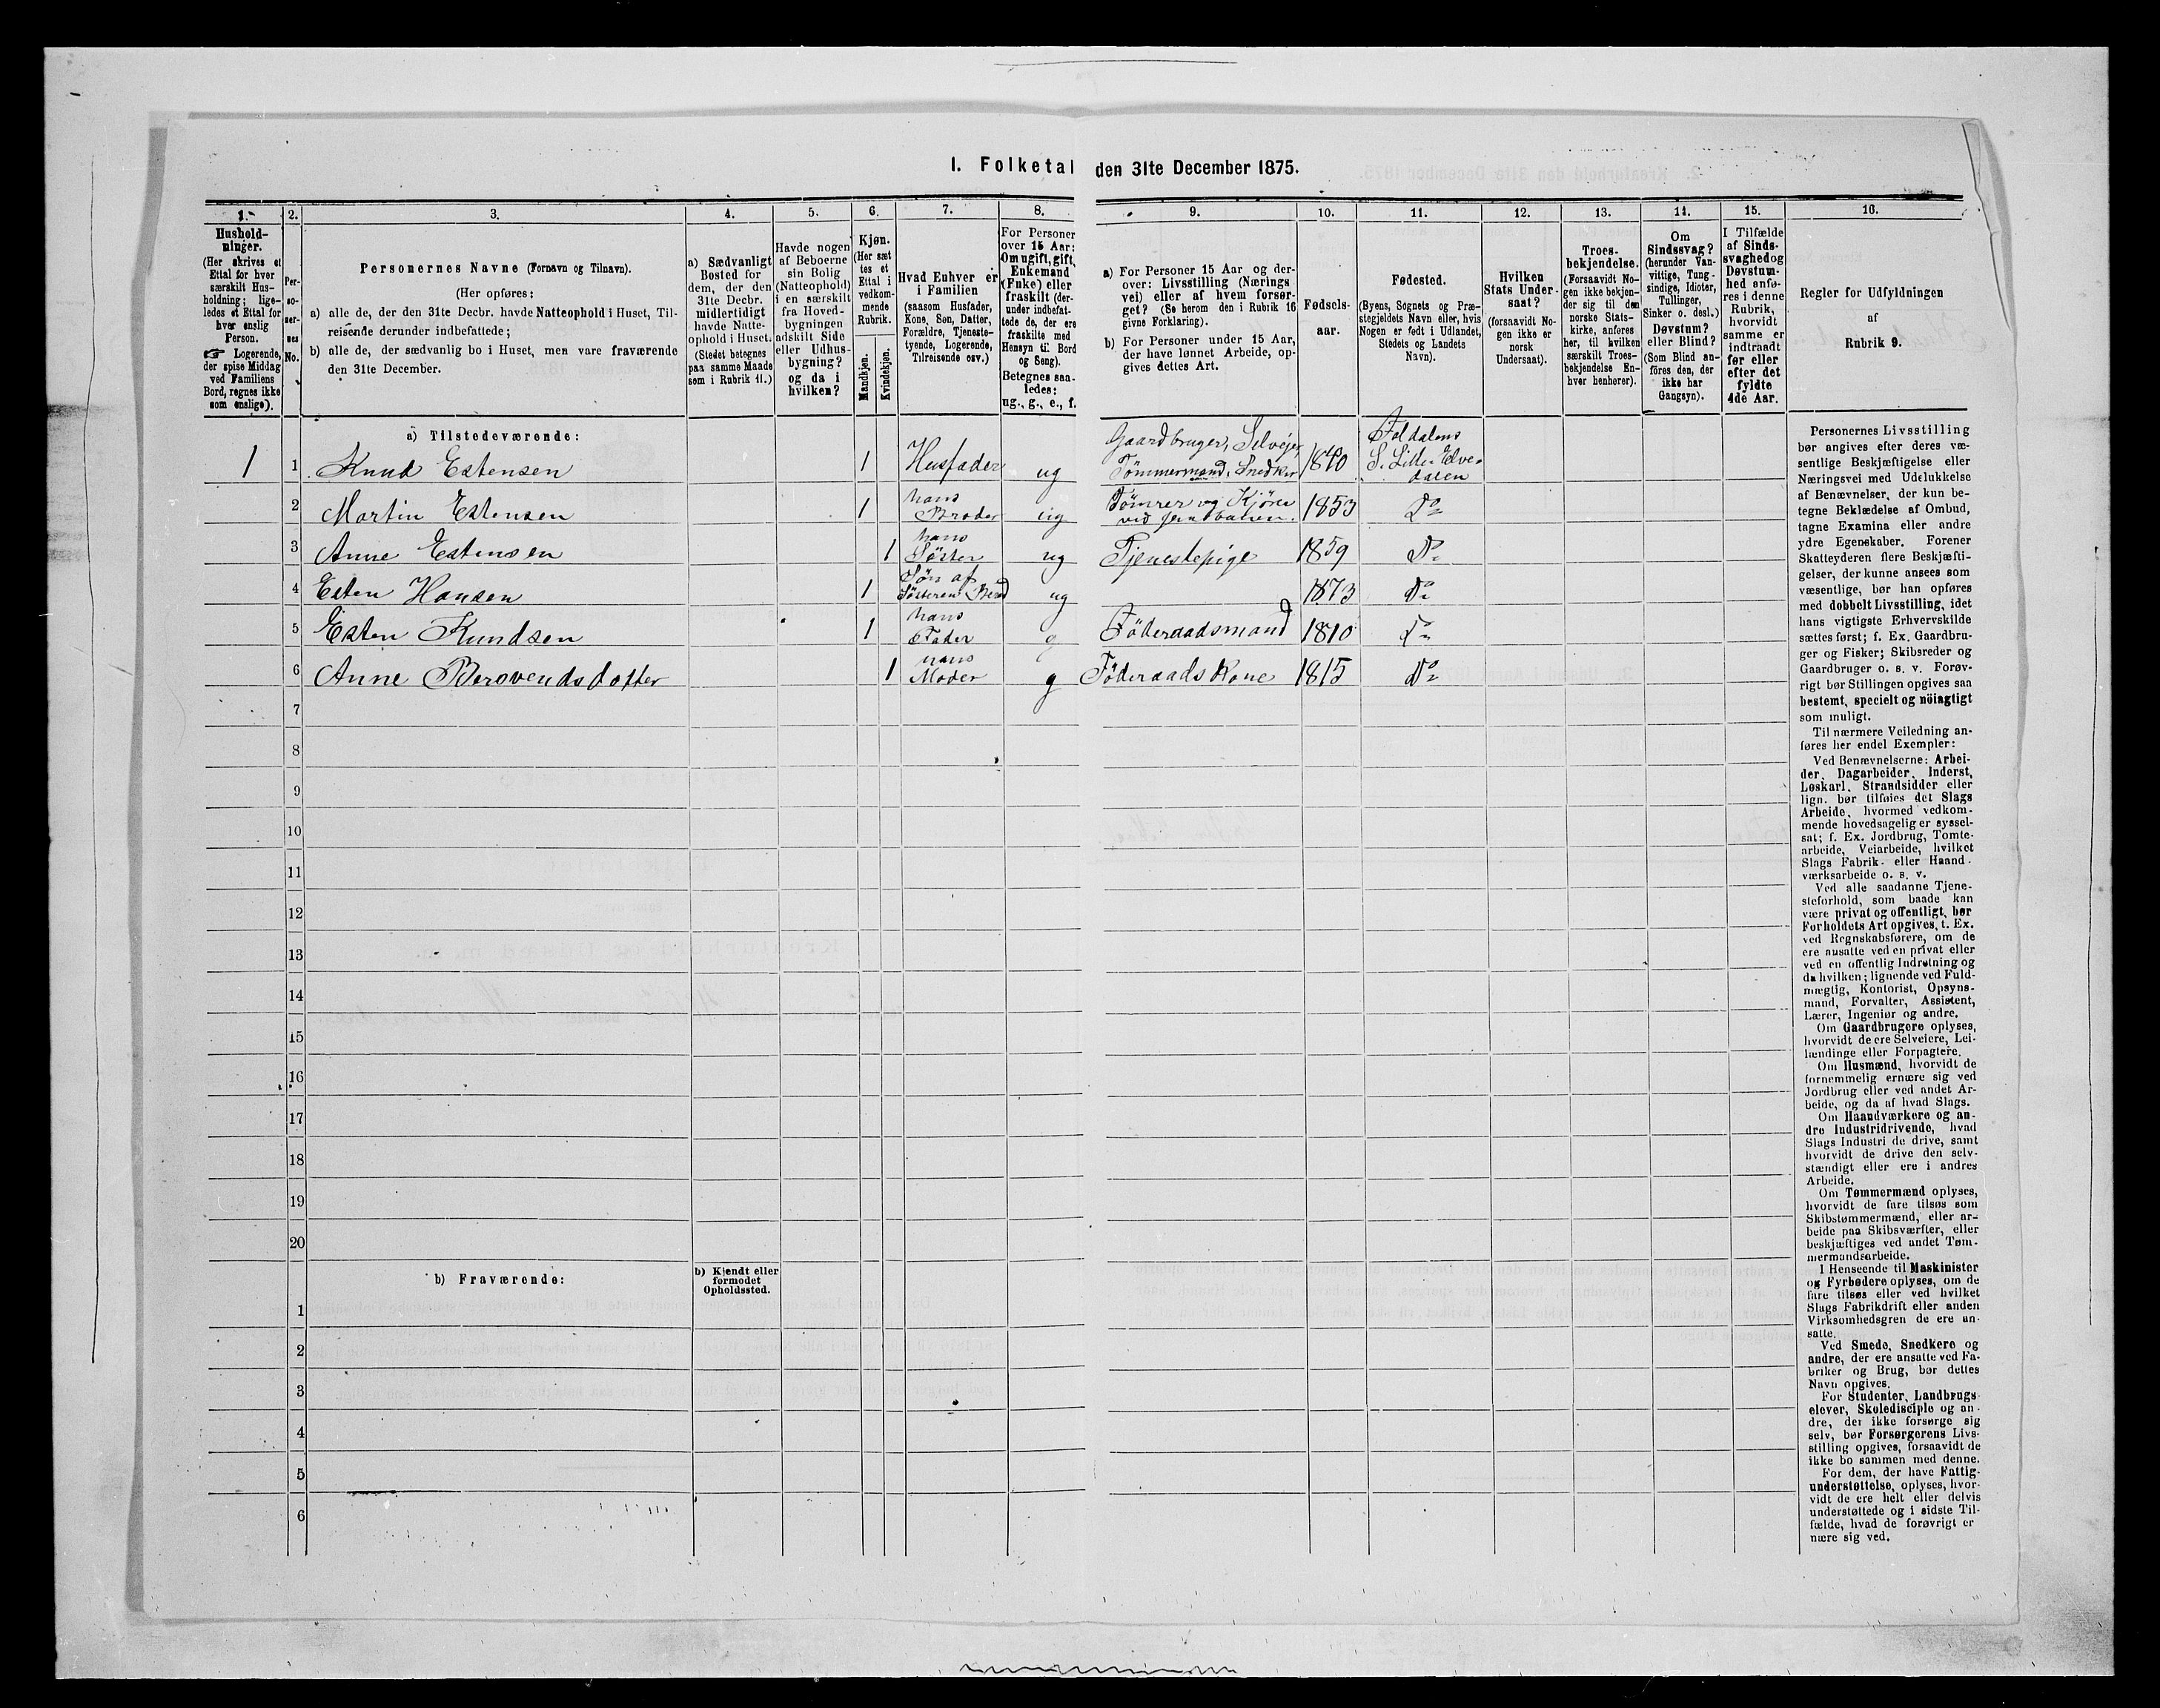 I. Folketal den 31te December 1875.
1. 2. 3. 4. 5. 6. 7. 8. 9. 10. 11. 12. 13. 14. 15. 16.
Hushold-
ninger.
(Her skrives et
Ettal for hver
særskilt Hus-
holdning; lige-
ledes et Ettal for
hver enslig
Person.
☞ Logerende,
der spise Middag
ved Familiens
Bord, regnes ikke
som enslige).
Per-
so-
ner-
nes
No.
Personernes Navne (Fornavn og Tilnavn).
(Her opføres:
a) alle de, der den 31te Decbr. havde Natteophold i Huset, Til-
reisende derunder indbefattede;
b) alle de, der sædvanlig bo i Huset, men vare fraværende
den 31te December.
a) Sædvanligt
Bosted for
dem, der den
31te Decbr.
midlertidigt
havde Natte-
ophold i Huset.
(Stedet betegnes
paa samme Maade
som i Rubrik 11.)
Havde nogen
af Beboerne
sin Bolig
(Natteophold)
i en særskilt
fra Hoved-
bygningen
adskilt Side
eller Udhus-
bygning?
og da i
hvilken?
Kjøn.
(Her sæt
tes et
Ettal i
vedkom-
mende
Rubrik.
Mandkjøn.
Kvindekjøn.
Hvad Enhver er
i Familien
(saasom Husfader,
Kone, Søn, Datter,
Forældre, Tjeneste-
tyende, Logerende,
Tilreisende osv.)
For Personer
over 15 Aar:
Om ugift, gift,
Enkemand
(Enke) eller
fraskilt (der-
under indbefat-
tede de, der ere
fraskilte med
Hensyn til Bord
og Seng).
Betegnes saa-
ledes:
ug., g., e., f.
a) For Personer 15 Aar og der-
over: Livsstilling (Nærings
vei) eller af hvem forsør-
get? (Se herom den i Rubrik 16
givne Forklaring).
b) For Personer under 15 Aar,
der have lønnet Arbeide, op-
gives dettes Art.
Fødsels-
aar.
Fødested.
(Byens, Sognets og Præ-
stegjeldets Navn eller, hvis
Nogen er født i Udlandet,
Stedets og Landets
Navn).
Hvilken
Stats Under-
saat?
(forsaavidt No-
gen ikke er
norsk
Undersaat).
Troes-
bekjendelse.
(Forsaavidt No-
gen ikke bekjen-
der sig til den
norske Stats-
kirke, anføres
her, til hvilken
særskilt Troes-
bekjendelse En-
hver henhører).
Om
Sindssvag?
(herunder Van-
vittige, Tung-
sindige, Idioter,
Tullinger,
Sinker o. desl.)
Døvstum?
eller Blind?
(Som Blind an-
føres den, der
ikke har
Gangsyn).
I Tilfælde
af Sinds-
svaghed og
Døvstum-
hed anfø-
res i denne
Rubrik,
hvorvidt
samme er
indtraadt
før eller
efter det
fyldte
4de Aar.
Regler for Udfyldningen
af
Rubrik 9.
a) Tilstedeværende:
1 1 Knud Estensen 1 Husfader ug Gaardbruger, Selveier, Tömmermand, Snedker 1840 Foldalens S. Lille Elve-dalen
2 Martin Estensen 1 hans Broder ug Tömrer og Kjörer ved Jernbanen. 1853 Do
3 Anne Estensen 1 hans Söster ug Tjenestepige 1859 Do
4 Esten Hansen 1 Sön af Sösteren ug 1873 Do
5 Esten Knudsen 1 hans Fader g Föderaadsmand 1810 Do
6 Anne 1 hans Moder g Föderaads Kone 1815 Do
7
8
9
10
11
12
13
14
15
16
17
18
19
20
b) Fraværende:
b) Kjendt eller
formodet
Opholdssted.
1
2
3
4
5
6
Personernes Livsstilling
bør angives efter deres væ-
sentlige Beskjæftigelse eller
Næringsvei med Udelukkelse
af Benævnelser, der kun be-
tegne Beklædelse af Ombud,
tagne Examina eller andre
ydre Egenskaber. Forener
Skatteyderen flere Beskjæfti-
gelser, der kunne ansees som
væsentlige, bør han opføres
med dobbelt Livsstilling, idet
hans vigtigste Erhvervskilde
sættes først; f. Ex. Gaardbru-
ger og Fisker; Skibsreder og
Gaardbruger o. s. v. Forøv-
rigt bør Stillingen opgives saa
bestemt, specielt og nöiagtigt
som muligt.
Til nærmere Veiledning an-
føres her endel Exempler:
Ved Benævnelserne: Arbei-
der, Dagarbeider, Inderst,
Løskarl, Strandsidder eller
lign. bør tilføies det Slags
Arbeide, hvormed vedkom-
mende hovedsagelig er syssel-
sat; f. Ex. Jordbrug, Tomte-
arbeide, Veiarbeide, hvilket
Slags Fabrik- eller Haand-
værksarbeide o. s. v.
Ved alle saadanne Tjene-
steforhold, som baade kan
være privat og offentligt, bør
Forholdets Art opgives, t. Ex.
ved Regnskabsførere, om de
ere ansatte ved en privat eller
ved en offentlig Indretning og
da hvilken; lignende ved Fuld-
mægtig, Kontorist, Opsyns-
mand, Forvalter, Assistent,
Lærer, Ingeniør og andre.
Om Gaardbrugere oplyses,
hvorvidt de ere Selveiere, Lei-
lændinge eller Forpagtere.
Om Husmænd, hvorvidt de
fornemmelig ernære sig ved
Jordbrug eller ved andet Ar-
beide, og da af hvad Slags.
Om Haandværkere og an-
dre Industridrivende, hvad
Slags Industri de drive, samt
hvorvidt de drive den selv-
stændigt eller ere i andres
Arbeide.
Om Tømmermænd oplyses,
hvorvidt de fare tilsøs som
Skibstømmermænd, eller ar-
beide paa Skibsværfter, eller
beskjæftiges ved andet Tøm-
mermandsarbeide.
I Henseende til Maskinister
og Fyrbødere oplyses, om de
fare tilsøs eller ved hvilket
Slags Fabrikdrift eller anden
Virksomhedsgren de ere an-
satte.
Ved Smede, Snedkere og
andre, der ere ansatte ved Fa-
briker og Brug, bør dettes
Navn opgives.
For Studenter, Landbrugs-
elever, Skoledisciple og an-
dre, der ikke forsørge sig
selv, bør Forsørgerens Livs-
stilling opgives, forsaavidt de
ikke bo sammen med denne.
For dem, der have Fattig-
understøttelse, oplyses, hvor-
vidt de ere helt eller delvis
understøttede og i sidste Til-
fælde, hvad de forøvrigt er
nære sig ved.